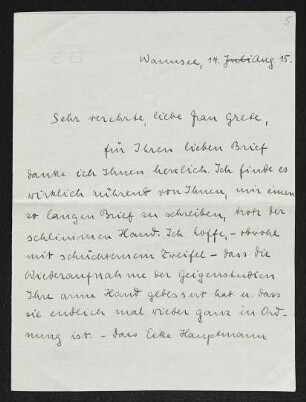 5
Wannsee, 14. Juli Aug 15.
Sehr verehrte, liebe Frau Grete,
für Ihren lieben Brief
danke ich Ihnen herzlich. Ich finde es
wirklich rührend von Ihnen, mir einen
so langen Brief zu schreiben, trotz der
schlimmen Hand. Ich hoffe, – obwohl
mit schüchternem Zweifel – dass die
Wiederaufnahme der Geigenstudien
Ihre arme Hand gebessert hat u. dass
sie endlich mal wieder ganz in Ord-
nung ist. – Dass Ecke Hauptmann